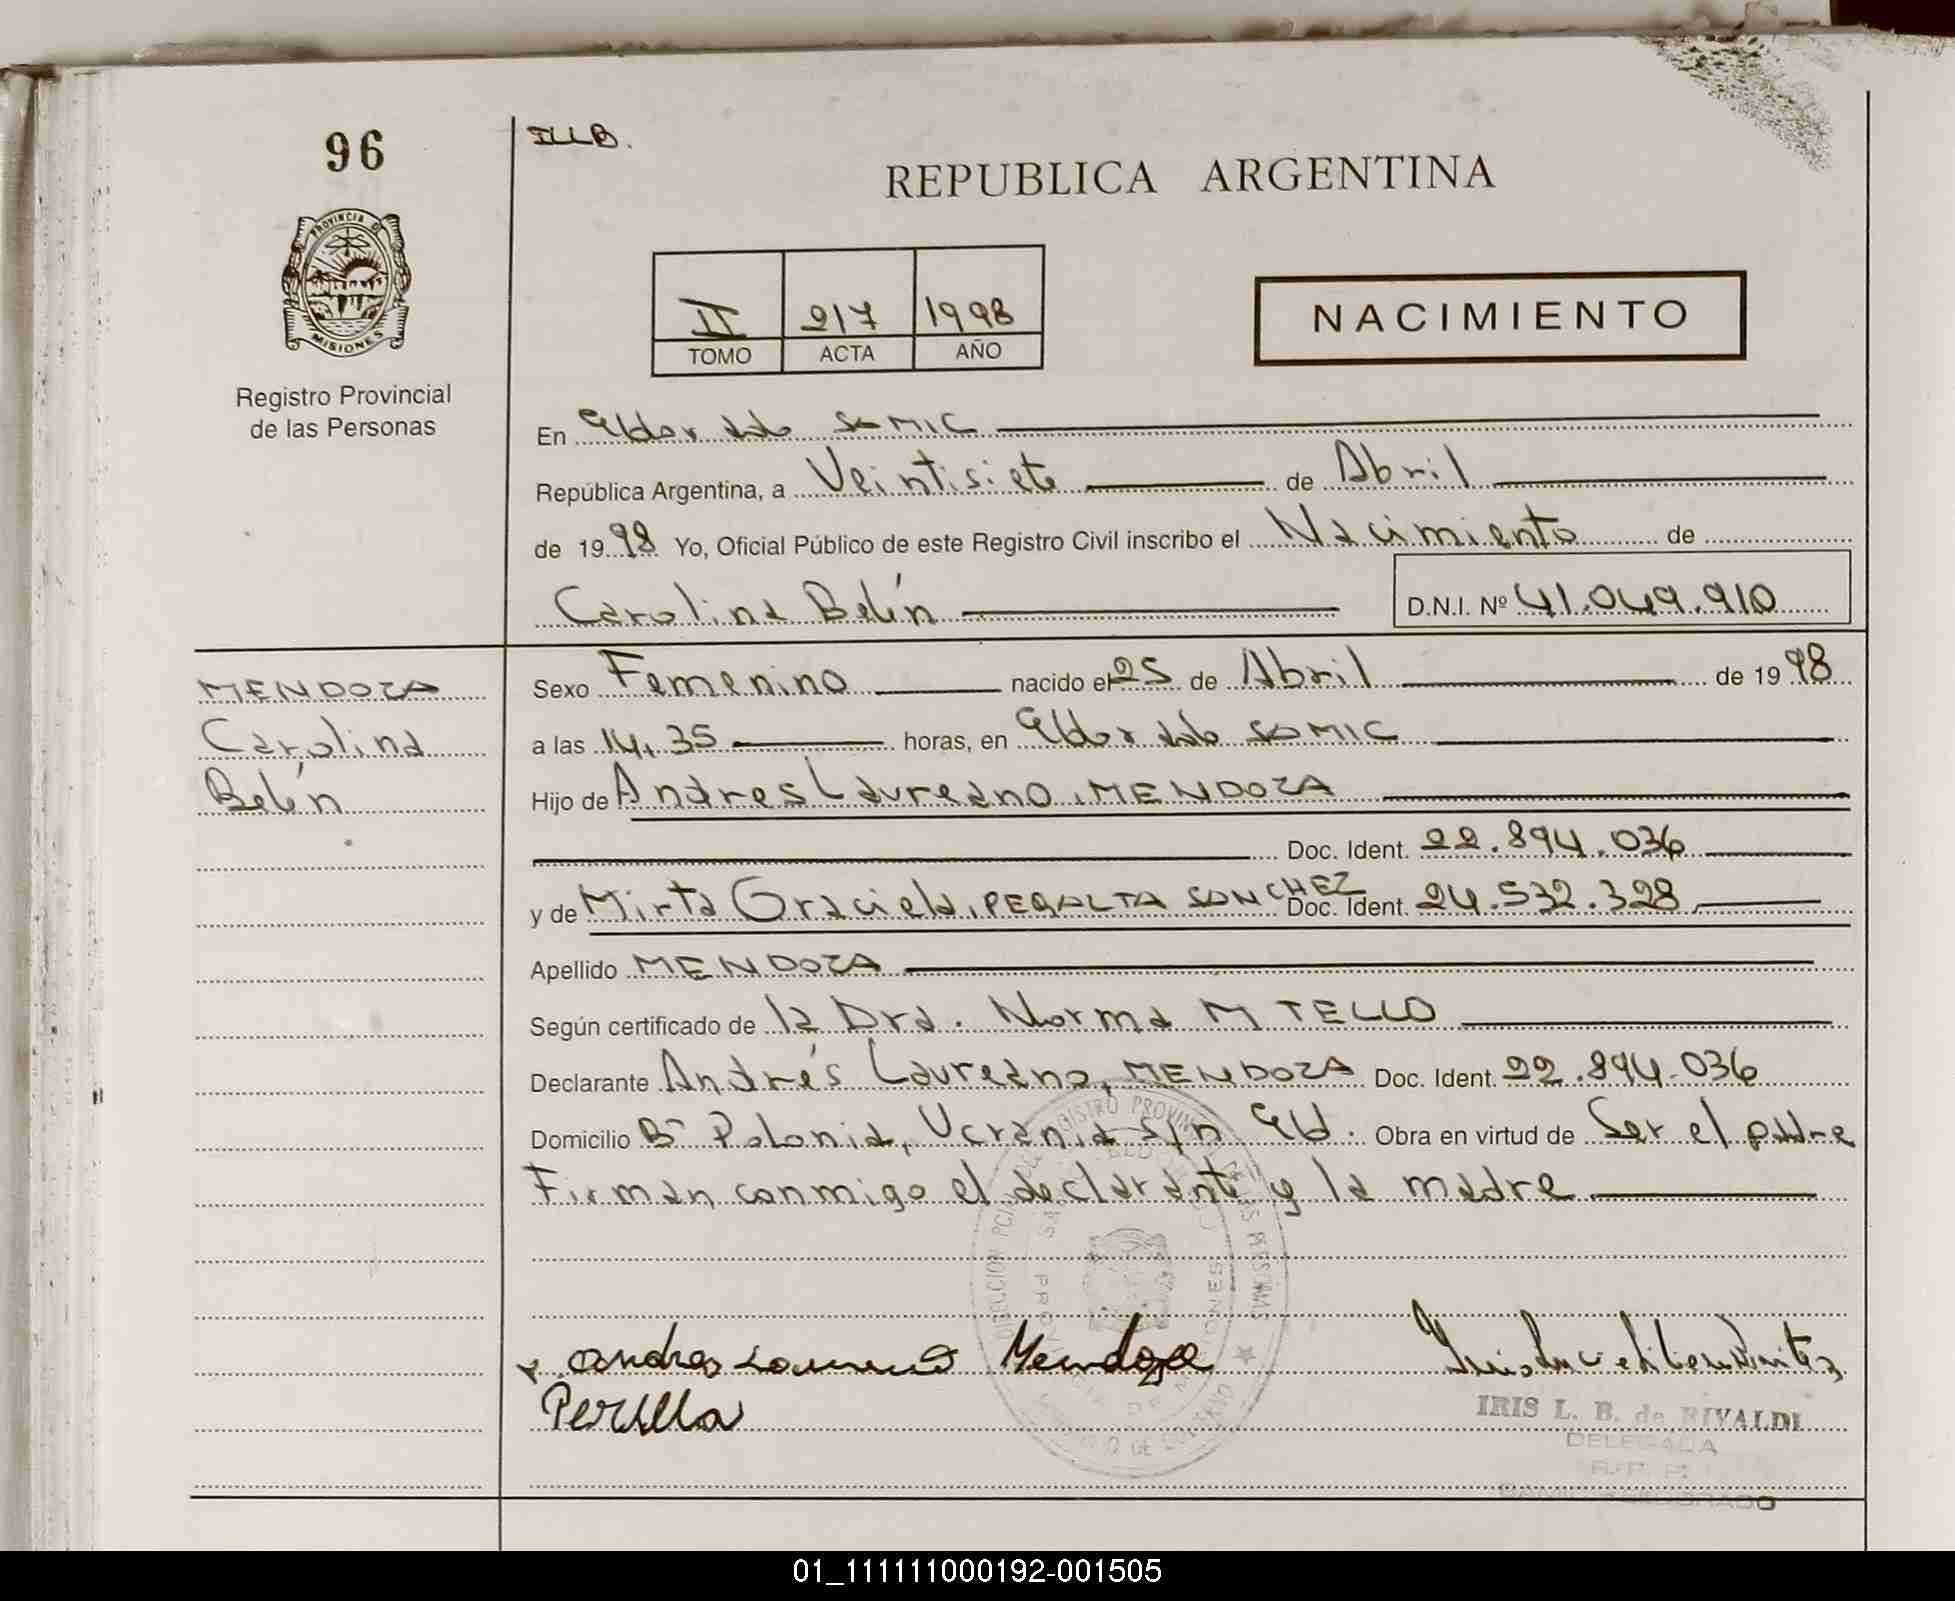 96
ILLB.
REPUBLICA ARGENTINA
PROVINCIA D
MISIONES
Registro Provincial
de las Personas
II 217 1998
TOMO ACTA AÑO
NACIMIENTO
En Eldorado SAMIC
República Argentina, a Veintisiete de Abril
de 1998 Yo, Oficial Público de este Registro Civil inscribo el Nacimiento de
Carolina Belén D.N.I. Nº 41.049.910
MENDOZA
Carolina
Belén
Sexo Femenino nacido el 25 de Abril de 1998
a las 14,35 horas, en Eldorado SAMIC
Hijo de Andres Laureano, MENDOZA
Doc. Ident. 22.894.036
y de Mirta Graciela, PERALTA SANCHEZ Doc. Ident. 24.532.328
Apellido MENDOZA
Según certificado de la Dra. Norma M TELLO
Declarante Andrés Laureano, MENDOZA Doc. Ident. 22.894.036
Domicilio Bº Polonia, Ucrania s/n Eld. Obra en virtud de Ser el padre
Firman conmigo el declarante y la madre
Mendoza
IRIS L. B. de RIVALDI
DELEGADA
R. P. P.
01_111111000192-001505